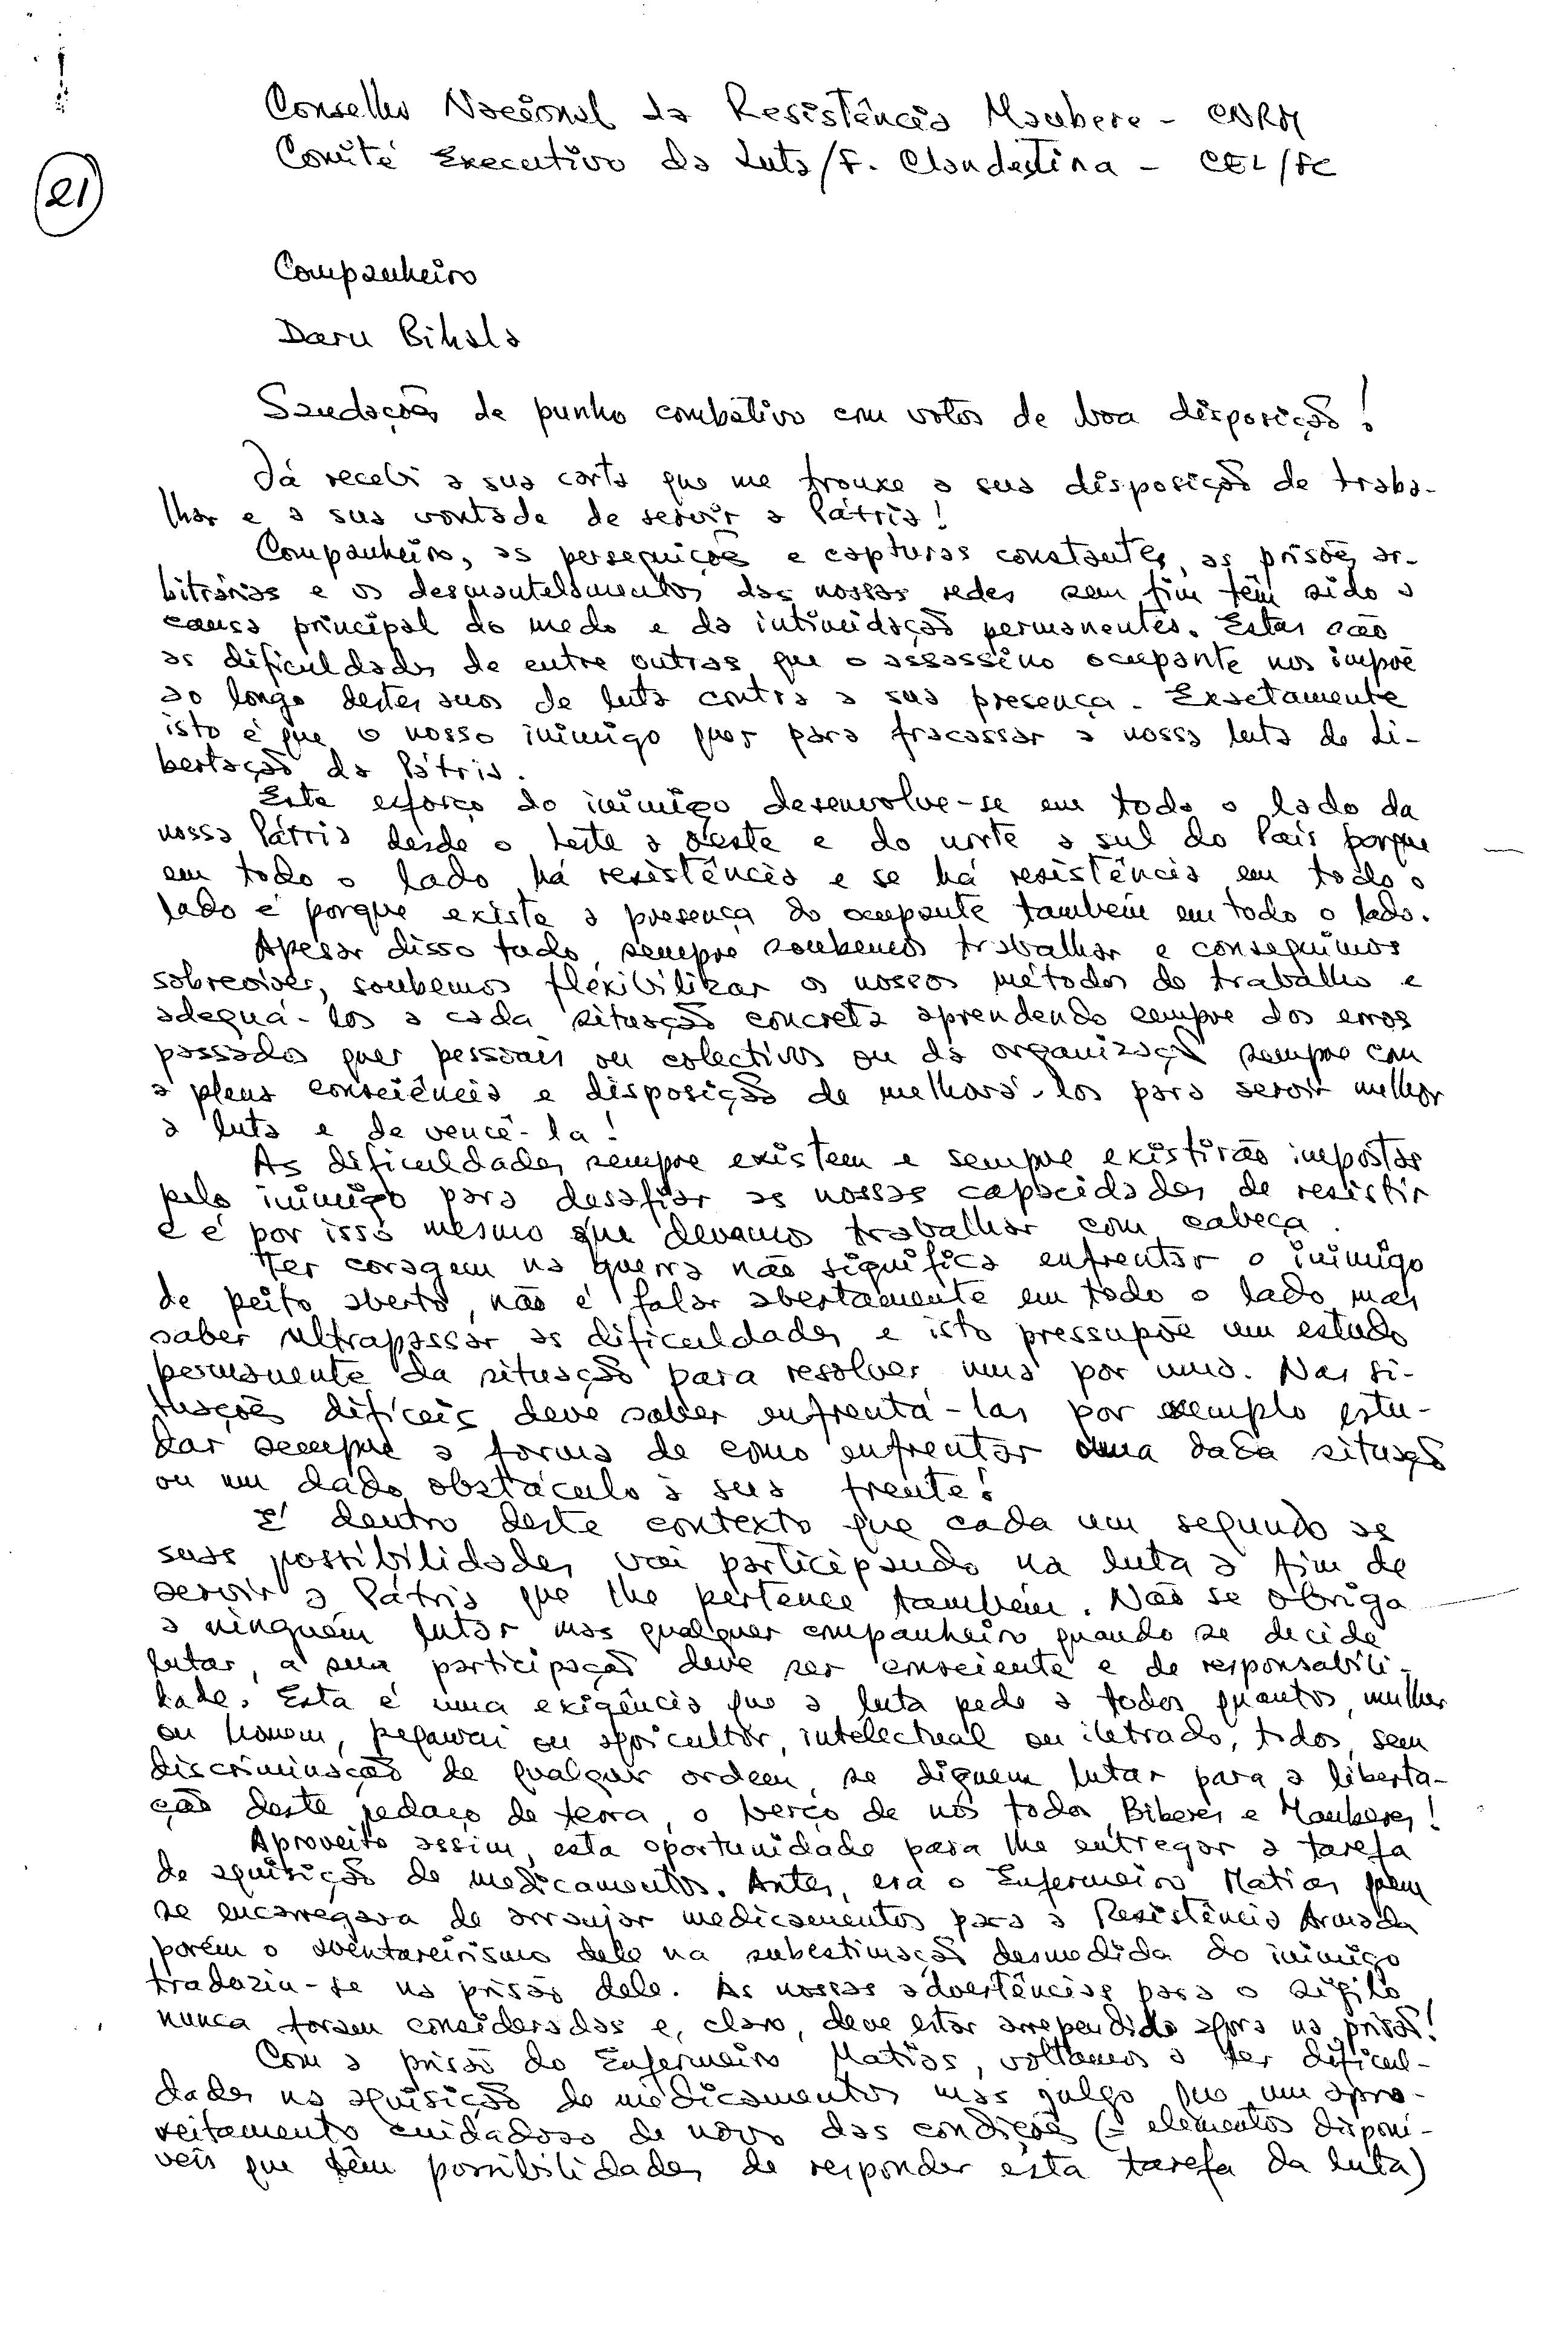 Conselho Nacional da Resistência Maubere - CNRM
Comité Executivo da Luta/F. Clandestina - CEL/FC
21
Companheiro
Daru Bihala
Saudações de punho combativo com votos de boa disposição!
Já recebi a sua carta que me trouxe a sua disposição de traba-
lhar e a sua vontade de servir a Pátria!
Companheiro, as perseguições e capturas constantes, as prisões ar-
bitrárias e os desmantelamentos das nossas redes sem fim têm sido a
causa principal do medo e da intimidação permanentes. Estas são
as dificuldades de entre outras que o assassino ocupante nos impõe
ao longo destes anos de luta contra a sua presença. Exactamente
isto é que o nosso inimigo quer para fracassar a nossa luta de Li-
bertação da Pátria.
Este esforço do inimigo desenvolve-se em todo o lado da
nossa Pátria desde o Leste a Oeste e do norte a sul do País porque
em todo o lado há resistência e se há resistência em todo o
lado é porque existe a presença do ocupante também em todo o lado.
Apesar disso tudo, sempre soubemos trabalhar e conseguimos
sobreviver, soubemos flexibilizar os nossos métodos de trabalho e
adequá-los a cada situação concreta aprendendo sempre dos erros
passados quer pessoais ou colectivos ou da organização sempre com
a plena consciência e disposição de melhorá-los para servir melhor
a luta e de vencê-la!
As dificuldades sempre existem e sempre existirão impostas
pelo inimigo para desafiar as nossas capacidades de resistir
e é por isso mesmo que devemos trabalhar com cabeça.
Ter coragem na guerra não significa enfrentar o inimigo
de peito aberto, não é falar abertamente em todo o lado mas
saber ultrapassar as dificuldades e isto pressupõe um estudo
permanente da situação para resolver uma por uma. Nas si-
tuações difíceis deve saber enfrentá-las por exemplo estu-
dar sempre a forma de como enfrentar uma dada situação
ou um dado obstáculo à sua frente!
É dentro deste contexto que cada um segundo as
suas possibilidades vai participando na luta a fim de
servir a Pátria que lhe pertence também. Não se obriga
a ninguém lutar mas qualquer companheiro quando se decide
lutar, a sua participação deve ser consciente e de responsabili-
dade. Esta é uma exigência que a luta pede a todos quantos, mulher
ou homem, pegawai ou agricultor, intelectual ou iletrado, todos, sem
discriminação de qualquer ordem, se dignem lutar para a liberta-
ção deste pedaço de terra, o berço de nós todos, Biberes e Mauberes!
Aproveito assim, esta oportunidade para lhe entregar a tarefa
de aquisição de medicamentos. Antes, era o Enfermeiro Matias quem
se encarregava de arranjar medicamentos para a Resistência Armada
porém o aventureirismo dele na subestimação desmedida do inimigo
traduziu-se na prisão dele. As nossas advertências para o sigilo
nunca foram consideradas e, claro, deve estar arrependido agora na prisão!
Com a prisão do Enfermeiro Matias, voltamos a ter dificul-
dades na aquisição de medicamentos mas julgo que um apro-
veitamento cuidadoso de novo das condições (= elementos disponí-
veis que têm possibilidades de responder esta tarefa da luta)